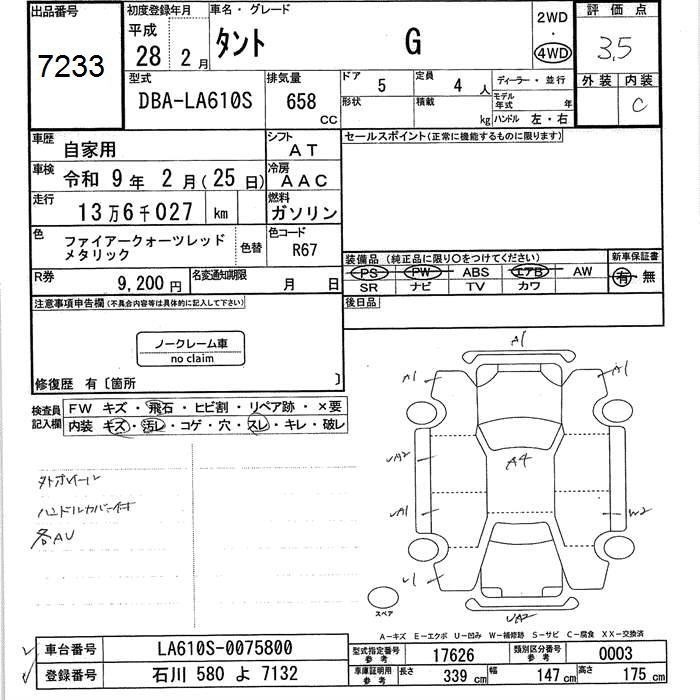 出品番号
7233
初度登録年月
平成
28 2 月
車名・グレード
タント G
2WD
・
4WD
評価点
3.5
外装 内装
C
型式
DBA-LA610S
排気量
658
CC
ドア 5
定員 4 人
形状
積載 kg
ディーラー・並行
モデル年式 年
ハンドル 左・右
車歴 自家用
シフト AT
車検 令和 9 年 2 月 (25 日)
冷房 AAC
走行 13万6千027 km
燃料 ガソリン
色 ファイアークォーツレッド
メタリック
色替
色コード
R67
R券 9,200 円
名変通知期限 月 日
セールスポイント(正常に機能するものに限ります)
装備品 (純正品に限り○をつけてください)
新車保証書
PS PW ABS エアB AW
有・無
SR ナビ TV カワ
後日品
注意事項申告欄(不具合内容等は具体的に記入して下さい)
ノークレーム車
no claim
修復歴 有〔箇所 〕
検査員
記入欄
FW キズ・飛石・ヒビ割・リペア跡・×要
内装 キズ・汚レ・コゲ・穴・スレ・キレ・破レ
外ホイール
ハンドルカバー付
各AU
A1
A1
A1
UA2
A4
UA1
W2
U1
UA2
スペア
A-キズ E-エクボ U-凹み W-補修跡 S-サビ C-腐食 XX-交換済
車台番号 LA610S-0075800
登録番号 石川 580 よ 7132
型式指定番号
参考
17626
類別区分番号
参考
0003
車庫証明用
参考
長さ 339 cm
幅 147 cm
高さ 175 cm